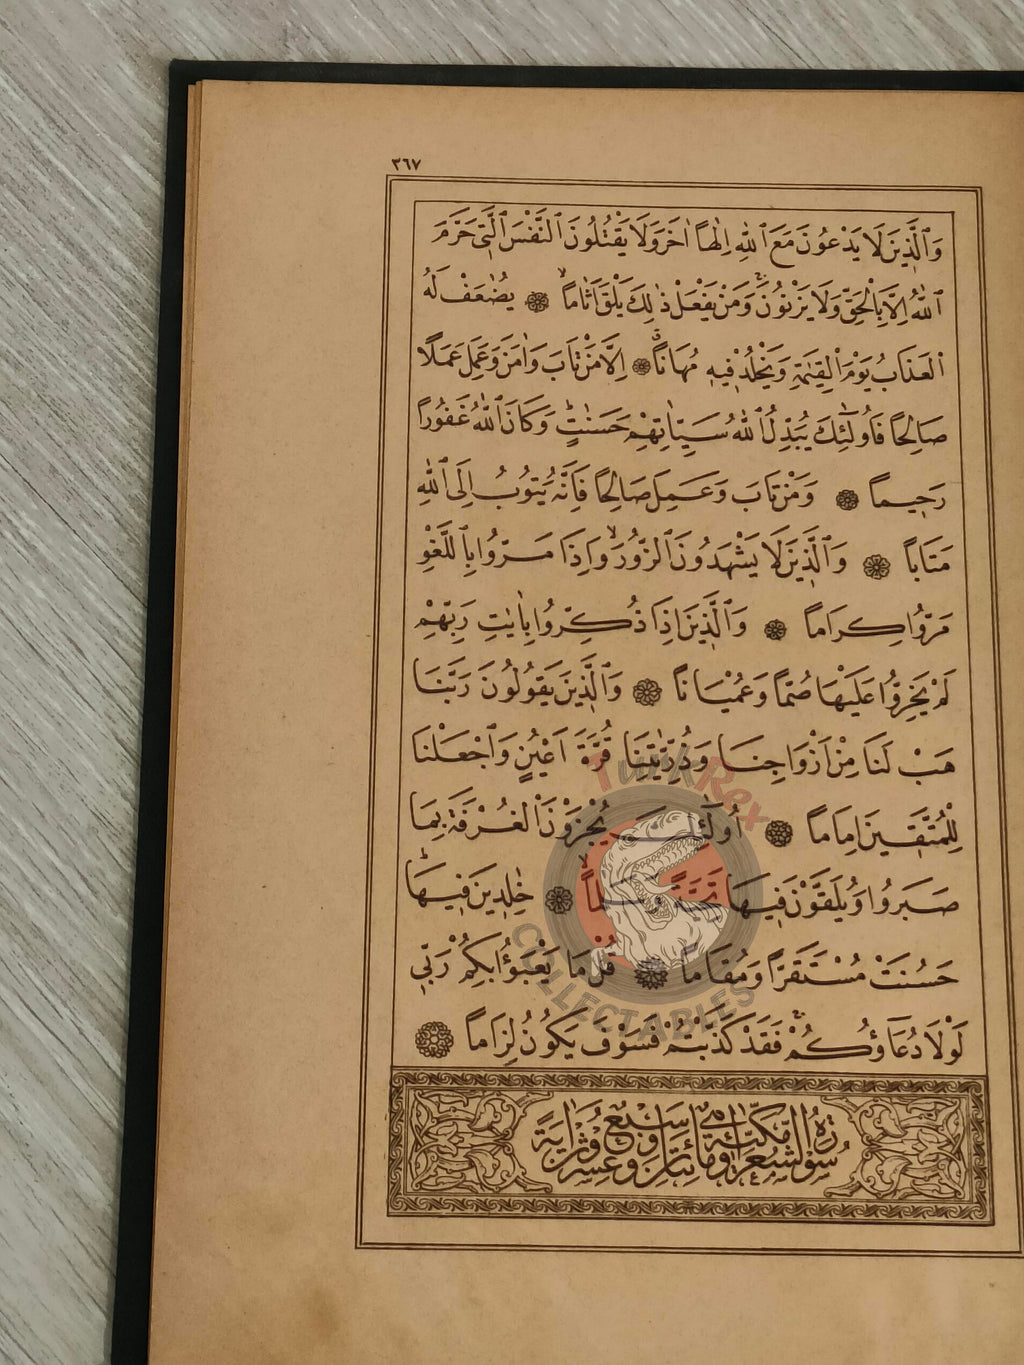 ٣٦٧
وَٱلَّذِينَ لَا يَدْعُونَ مَعَ ٱللّٰهِ اِلٰهاً اٰخَرَ وَلَا يَقْتُلُونَ ٱلنَّفْسَ ٱلَّتِي حَرَّمَ
ٱللّٰهُ اِلَّا بِالْحَقِّ وَلَا يَزْنُونَۚ وَمَنْ يَفْعَلْ ذٰلِكَ يَلْقَ اَثَاماًۙ ۞ يُضٰعَفْ لَهُ
الْعَذَابُ يَوْمَ الْقِيٰمَةِ وَيَخْلُدْ فِيهِ مُهَاناًۗ ۞ اِلَّا مَنْ تَابَ وَاٰمَنَ وَعَمِلَ عَمَلًا
صَالِحًا فَاُولٰٓئِكَ يُبَدِّلُ ٱللّٰهُ سَيِّـَٔاتِهِمْ حَسَنٰتٍۗ وَكَانَ ٱللّٰهُ غَفُورًا
رَحِيماً ۞ وَمَنْ تَابَ وَعَمِلَ صَالِحًا فَاِنَّهُ يَتُوبُ اِلَى ٱللّٰهِ
مَتَاباً ۞ وَٱلَّذِينَ لَا يَشْهَدُونَ ٱلزُّورَۙ وَاِذَا مَرُّوا بِٱللَّغْوِ
مَرُّوا كِرَاماً ۞ وَٱلَّذِينَ اِذَا ذُكِّرُوا بِاٰيٰتِ رَبِّهِمْ
لَمْ يَخِرُّوا عَلَيْهَا صُمّاً وَعُمْيَاناً ۞ وَٱلَّذِينَ يَقُولُونَ رَبَّنَا
هَبْ لَنَا مِنْ اَزْوَاجِنَا وَذُرِّيّٰتِنَا قُرَّةَ اَعْيُنٍ وَٱجْعَلْنَا
لِلْمُتَّقِينَ اِمَاماً ۞ اُولٰٓئِكَ يُجْزَوْنَ الْغُرْفَةَ بِمَا
صَبَرُوا وَيُلَقَّوْنَ فِيهَا تَحِيَّةً وَسَلَاماًۙ ۞ خٰلِدِينَ فِيهَاۗ
حَسُنَتْ مُسْتَقَرًّا وَمُقَاماً ۞ قُلْ مَا يَعْبَؤُا بِكُمْ رَبِّي
لَوْلَا دُعَاؤُكُمْۚ فَقَدْ كَذَّبْتُمْ فَسَوْفَ يَكُونُ لِزَاماً ۞
سُورَةُ الشُّعَرَاءِ مَكِّيَّةٌ وَهِيَ مِائَتَانِ وَسَبْعٌ وَعِشْرُونَ اٰيَةً
TurkRex
COLLECTABLES